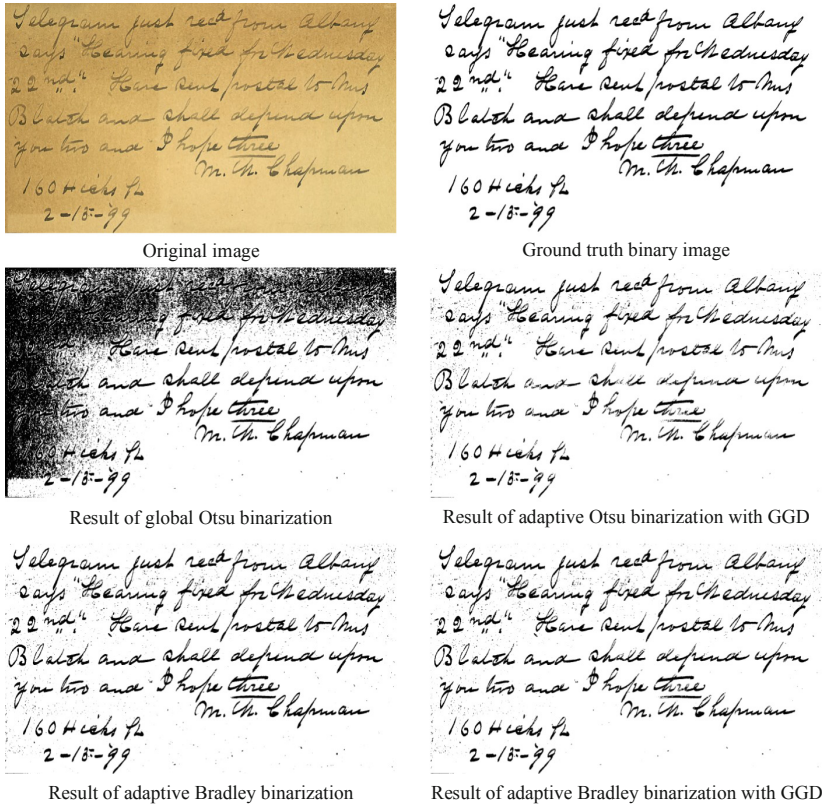 Telegram just recd from Albany
says "Hearing fixed for Wednesday
22nd." Have sent postal to Mrs
Blatch and shall depend upon
you two and I hope three
M. W. Chapman
160 Hicks St
2-15-'99
Original image
Telegram just recd from Albany
says "Hearing fixed for Wednesday
22nd." Have sent postal to Mrs
Blatch and shall depend upon
you two and I hope three
M. W. Chapman
160 Hicks St
2-15-'99
Ground truth binary image
Telegram just
Hearing fixed for Wednesday
Have sent postal to Mrs
Blatch and shall depend upon
you two and I hope three
M. W. Chapman
160 Hicks St
2-15-'99
Result of global Otsu binarization
Telegram just recd from Albany
says "Hearing fixed for Wednesday
22nd." Have sent postal to Mrs
Blatch and shall depend upon
you two and I hope three
M. W. Chapman
160 Hicks St
2-15-'99
Result of adaptive Otsu binarization with GGD
Telegram just recd from Albany
says "Hearing fixed for Wednesday
22nd." Have sent postal to Mrs
Blatch and shall depend upon
you two and I hope three
M. W. Chapman
160 Hicks St
2-15-'99
Result of adaptive Bradley binarization
Telegram just recd from Albany
says "Hearing fixed for Wednesday
22nd." Have sent postal to Mrs
Blatch and shall depend upon
you two and I hope three
M. W. Chapman
160 Hicks St
2-15-'99
Result of adaptive Bradley binarization with GGD